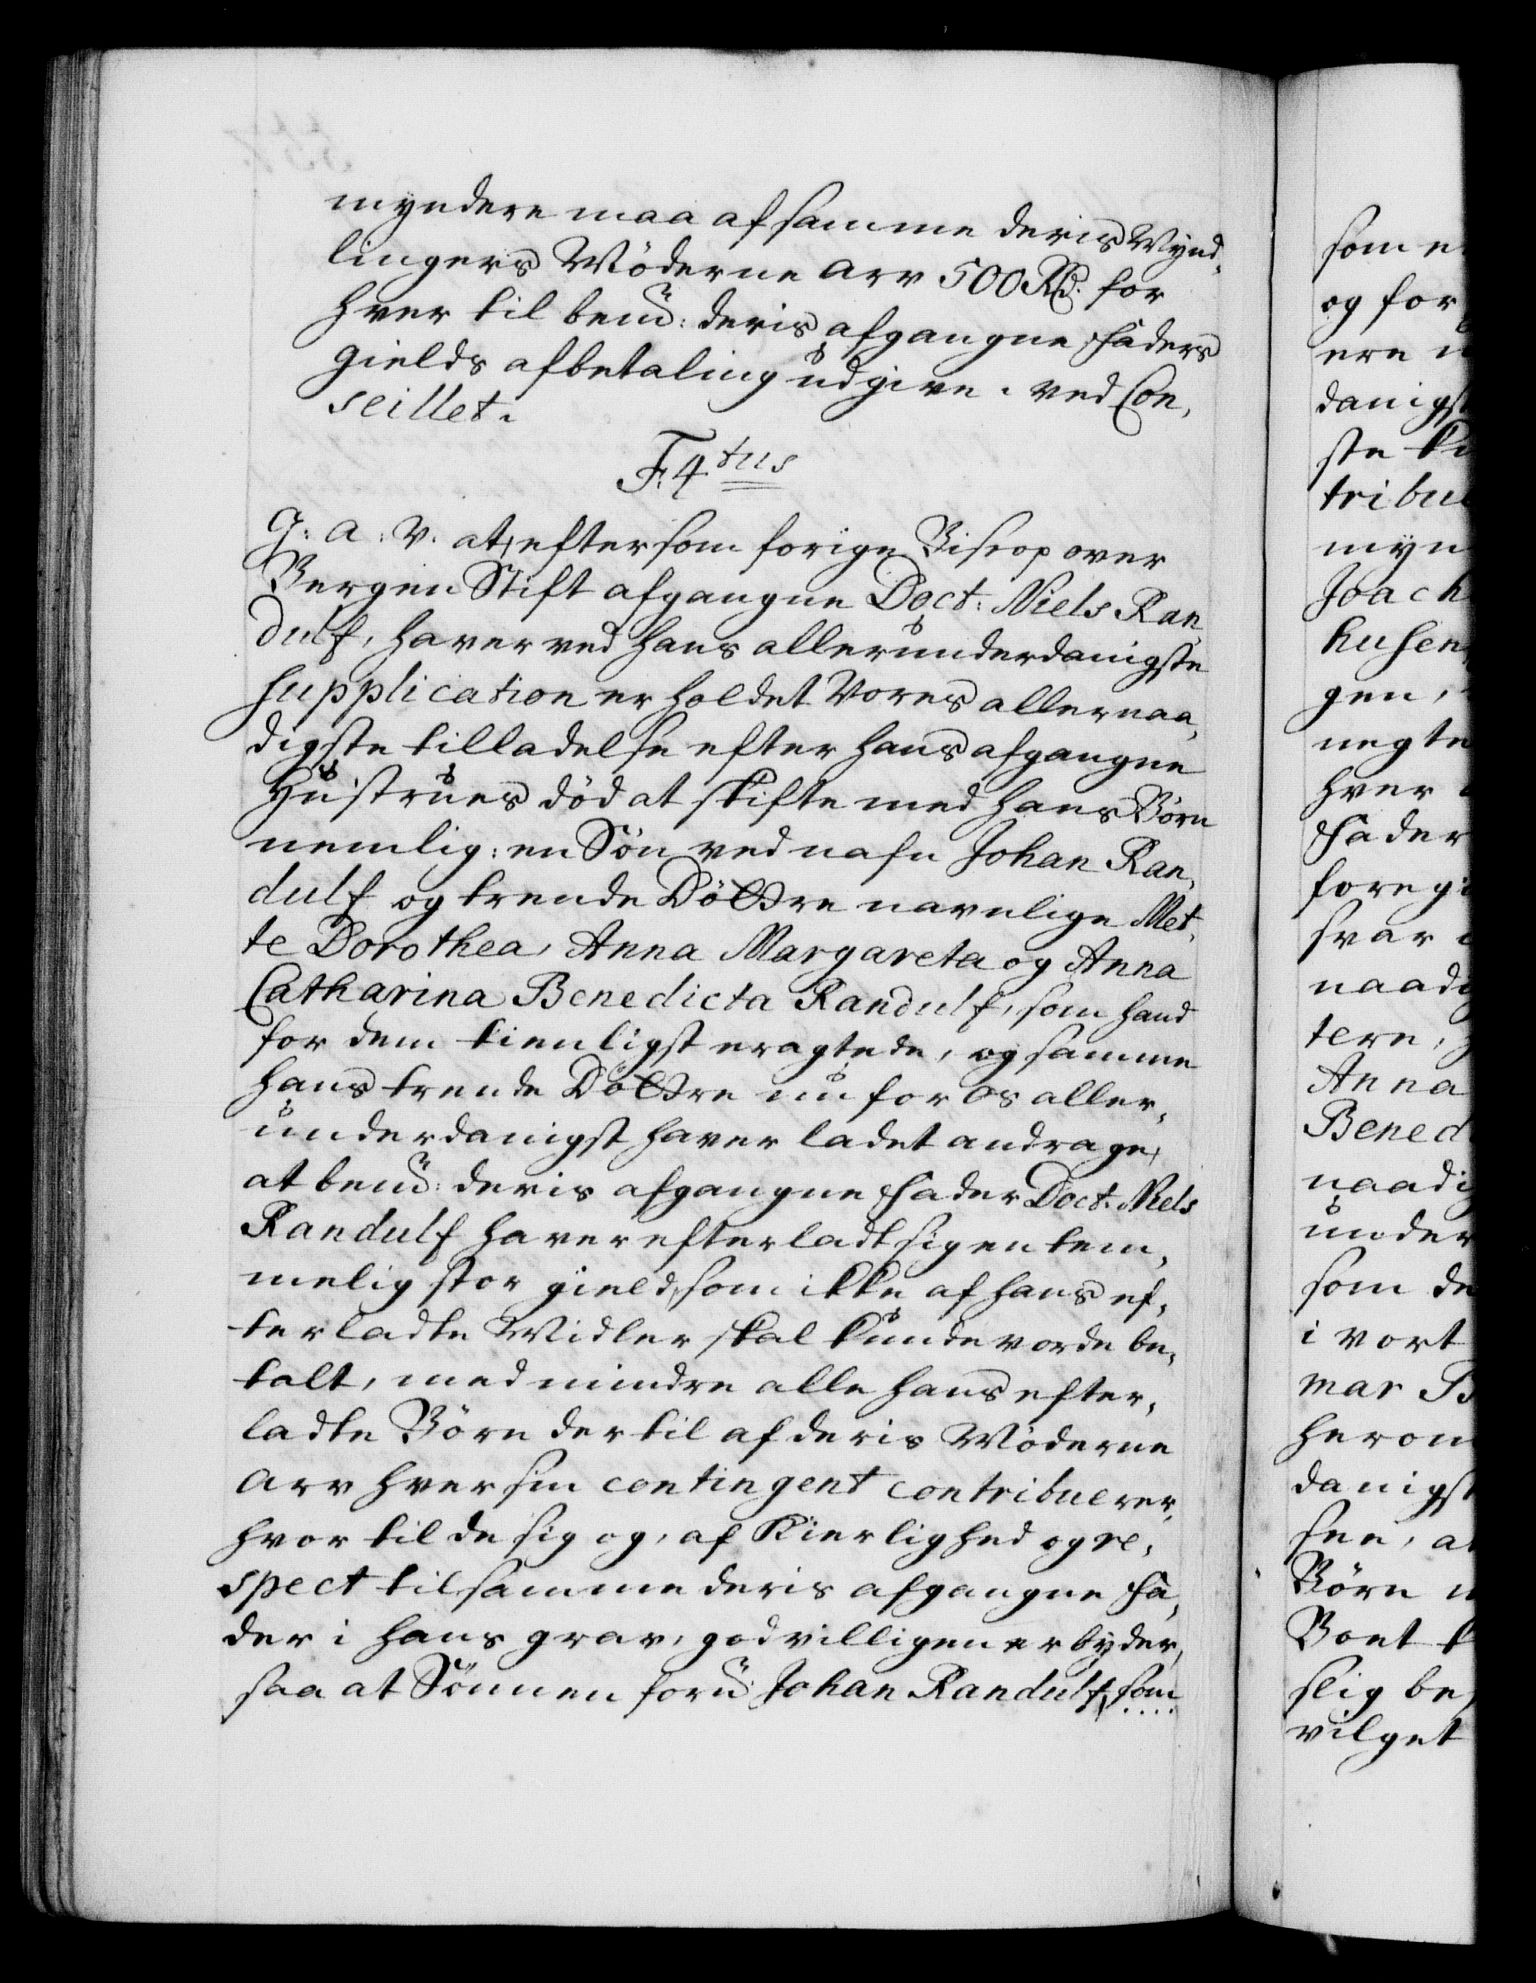 myndere maa af samme deris Mynd,
lingers Möderne Arv 500 Rd. for
hver til bemt: deris afgangne Faders
gields afbetaling udgive. ved Con,
seillet.
F. 4tus
G: A: V. at, eftersom forige Biscop over
Bergen Stift afgangne Doct: Niels Ran,
dulf, haver ved hans allerunderdanigste
supplication erholdet Vores allernaa,
digste tilladelse efter hans afgangne
Hustrues död at skifte med hans Börn
nemlig: en Sön ved nafn Johan Ran,
dulf og trende Döttre navnlige Met,
te Dorothea, Anna Margareta og Anna
Catharina Benedicta Randulf, som hand
for dem tienligst eragtede, og samme
hans trende Döttre nu for os aller,
underdanigst haver ladet andrage,
at bemt: deris afgangne Fader Doct. Niels
Randulf haver efterladt sig en tem,
melig stor gield, som ikke af hans ef,
terladte Midler skal kunde vorde be,
talt, med mindre alle hans efter,
ladte Börn dertil af deris Möderne
Arv hver sin contingent contribuerer,
hvor til de sig og, af Kierlighed og re,
spect til samme deris afgangne Fa,
der i hans grav, godvilligen erbyder,
saa at Sönnen fornt: Johan Randulf, som
som er
og for
ere
danigst
ste
tribue
myn
Joach
husen
gen,
negte
hver
Fader
foregi
svar
naadi
tere,
Anna
Bened
naadig
under
som de
i vort
mar
herom
danigst
see, at
Börn
Boet
slig be
vilget